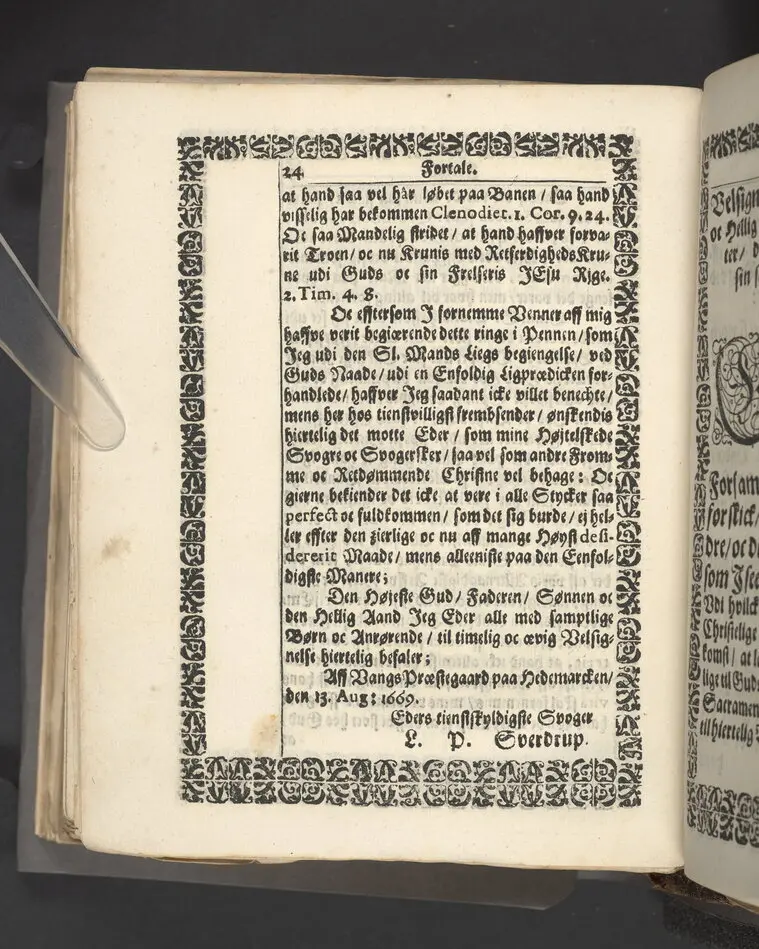 24 Fortale.
at hand saa vel har løbet paa Banen / saa hand
visselig har bekommen Clenodiet. 1. Cor. 9. 24.
Oc saa Mandelig stridet / at hand haffver forva-
rit Troen / oc nu Krunis med Retferdigheds Kru-
ne udi Guds oc sin Frelseris JEsu Rige.
2. Tim. 4. 8.
Oc efftersom I fornemme Venner aff mig
haffve verit begiærende dette ringe i Pennen / som
Jeg udi den Sl. Mands Liegs begiengelse / ved
Guds Naade / udi en Enfoldig Ligprædicken for-
handlede / haffver Jeg saadant icke villet benechte /
mens her hos tienstvilligst frembsender / ønskendis
hiertelig det motte Eder / som mine Højtelskede
Svogre oc Svogersker / saa vel som andre From-
me oc Retdømmende Christne vel behage: Oc
gierne bekiender det icke at vere i alle Stycker saa
perfect oc fuldkommen / som det sig burde / ej hel-
ler effter den zierlige oc nu aff mange Høyst desi-
dererit Maade / mens alleeniste paa den Eenfol-
digste Manere;
Den Højeste Gud / Faderen / Sønnen oc
den Hellig Aand Jeg Eder alle med samptlige
Børn oc Anrørende / til timelig oc ævig Velsig-
nelse hiertelig befaler;
Aff Vangs Præstegaard paa Hedemarcken /
den 13. Aug: 1669.
Eders tienstskyldigste Svoger
L. P. Sverdrup.
Velsign
oc Hellig
ter / d
sin s
Forsam
forskick /
dre / oc d
som Jsee
Udi hvilck
Christelige
komst / at l
lige til Guds
Sacramen
til hiertelig